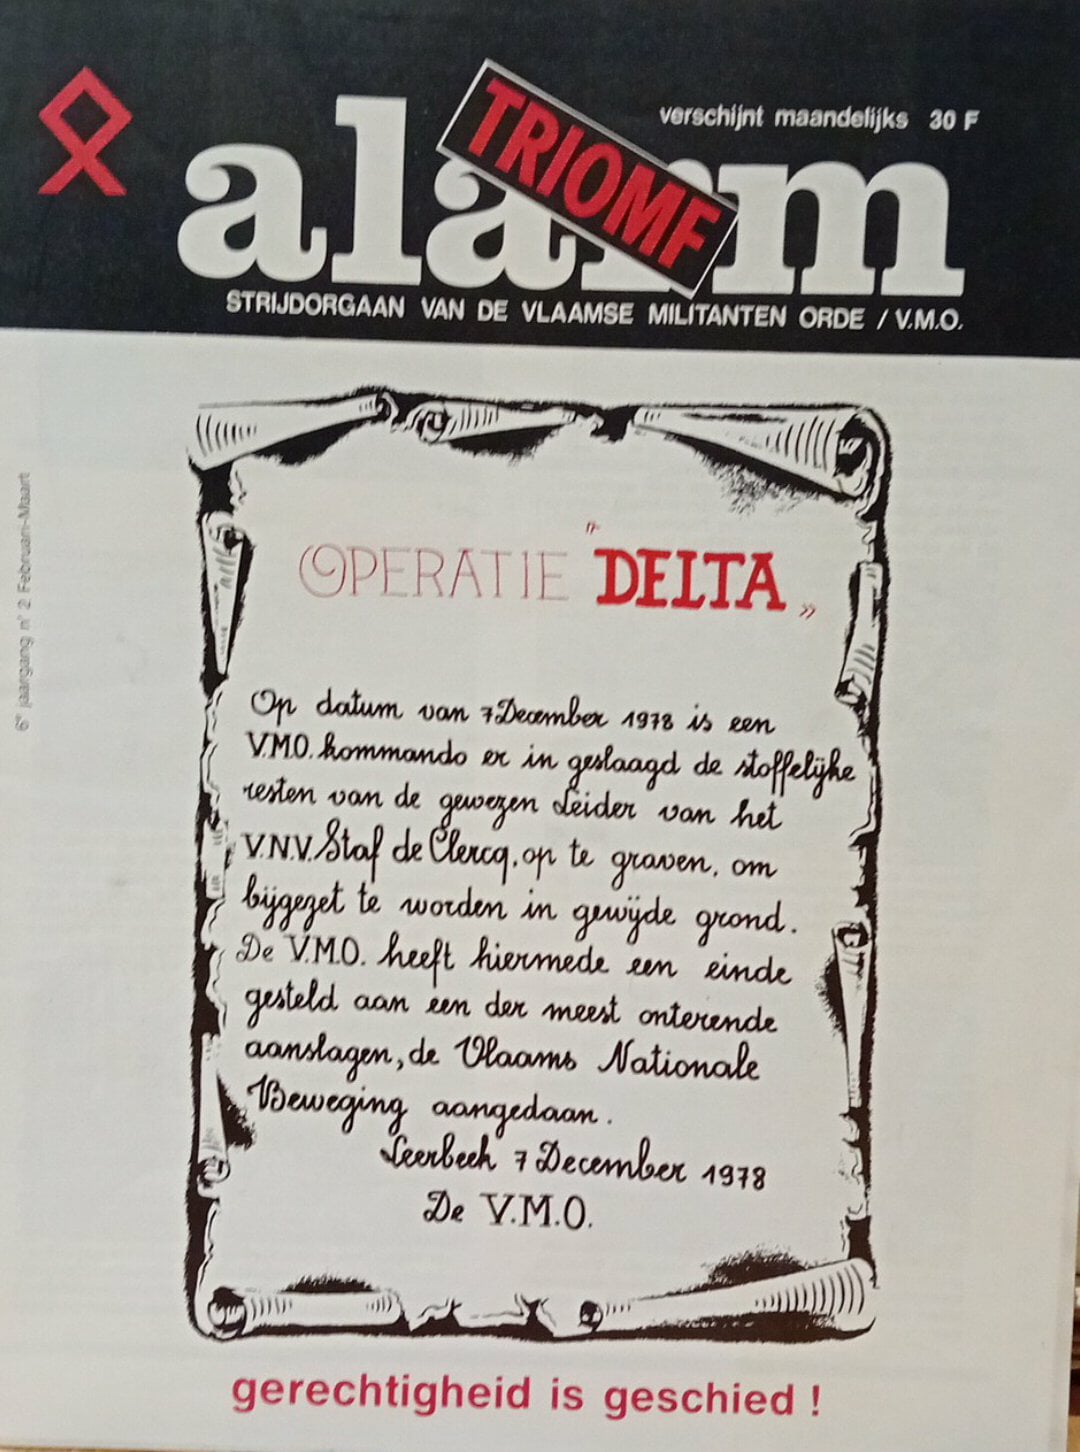 verschijnt maandelijks 30 F
alarm
TRIOMF
STRIJDORGAAN VAN DE VLAAMSE MILITANTEN ORDE / V.M.O.
6e jaargang n° 2 Februari-Maart
OPERATIE "DELTA„
Op datum van 7 December 1978 is een
V.M.O. kommando er in geslaagd de stoffelijke
resten van de gewezen Leider van het
V.N.V. Staf de Clercq, op te graven, om
bijgezet te worden in gewijde grond.
De V.M.O. heeft hiermede een einde
gesteld aan een der meest onterende
aanslagen, de Vlaams Nationale
Beweging aangedaan.
Leerbeek 7 December 1978
De V.M.O.
gerechtigheid is geschied !